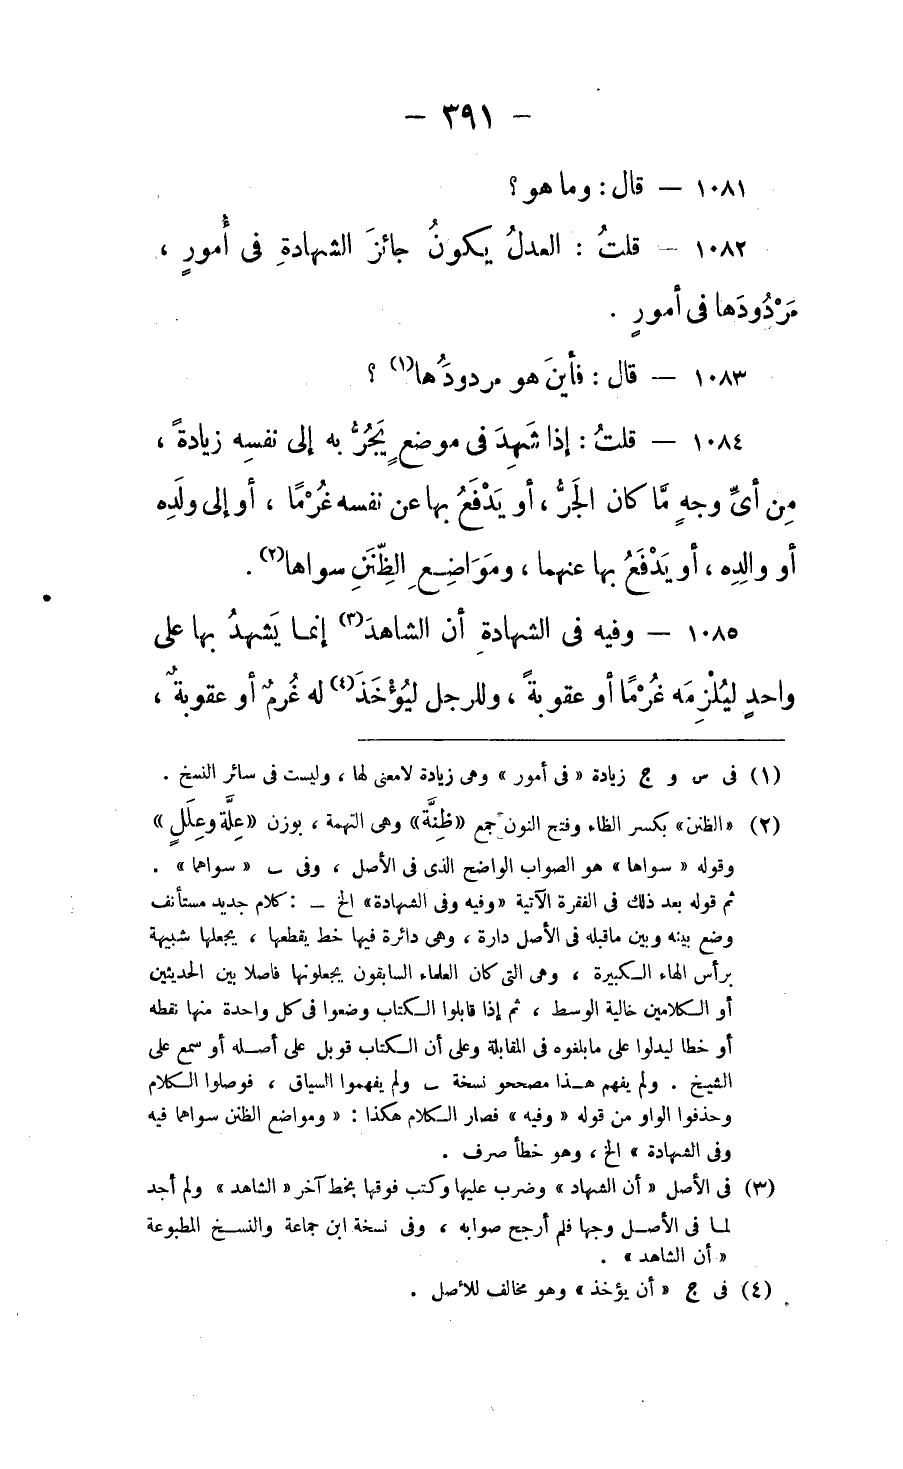 — ٣٩١ —
١٠٨١ — قال : وما هو ؟
١٠٨٢ — قلتُ : العدلُ يكونُ جائزَ الشهادةِ فى أُمورٍ ،
مَرْدُودَها فى أمورٍ .
١٠٨٣ — قال : فأينَ هو مردودُها(١) ؟
١٠٨٤ — قلتُ : إذا شَهِدَ فى موضعٍ يَجُرُّ به إلى نفسِه زيادةً ،
مِن أىِّ وجهٍ مَّا كان الجَرُّ ، أو يَدْفَعُ بها عن نفسه غُرْمًا ، أو إلى ولَدِه
أو والِدِه ، أو يَدْفَعُ بها عنهما ، ومَوَاضِعِ الظِّنَنِ سواها(٢) .
١٠٨٥ — وفيه فى الشهادةِ أن الشاهدَ(٣) إنما يَشهدُ بها على
واحدٍ ليُلْزِمَه غُرْمًا أو عقوبةً ، وللرجل ليُؤْخَذَ(٤) له غُرمٌ أو عقوبةٌ ،
(١) فى س و ج زيادة « فى أمور » وهى زيادة لامعنى لها ، وليست فى سائر النسخ .
(٢) «الظنن» بكسر الظاء وفتح النون جمع «ظِنَّة» وهى التهمة ، بوزن «عِلَّة وعِلَلٍ »
وقوله « سواها » هو الصواب الواضح الذى فى الأصل ، وفى ب « سواهما » .
ثم قوله بعد ذلك فى الفقرة الآتية «وفيه وفى الشهادة» الخ — : كلام جديد مستأنف
وضع بينه وبين ماقبله فى الأصل دارة ، وهى دائرة فيها خط يقطعها ، يجعلها شبيهة
برأس الهاء الكبيرة ، وهى التى كان العلماء السابقون يجعلونها فاصلا بين الحديثين
أو الكلامين خالية الوسط ، ثم إذا قابلوا الكتاب وضعوا فى كل واحدة منها نقطه
أو خطا ليدلوا على مابلغوه فى المقابلة وعلى أن الكتاب قوبل على أصله أو سمع على
الشيخ . ولم يفهم هذا مصححو نسخة ب ولم يفهموا السياق ، فوصلوا الكلام
وحذفوا الواو من قوله « وفيه » فصار الكلام هكذا : « ومواضع الظنن سواهما فيه
وفى الشهادة » الخ ، وهو خطأ صرف .
(٣) فى الأصل « أن الشهاد » وضرب عليها وكتب فوقها بخط آخر « الشاهد » ولم أجد
لما فى الأصل وجها فلم أرجح صوابه ، وفى نسخة ابن جماعة والنسخ المطبوعة
« أن الشاهد » .
(٤) فى ج « أن يؤخذ » وهو مخالف للأصل .